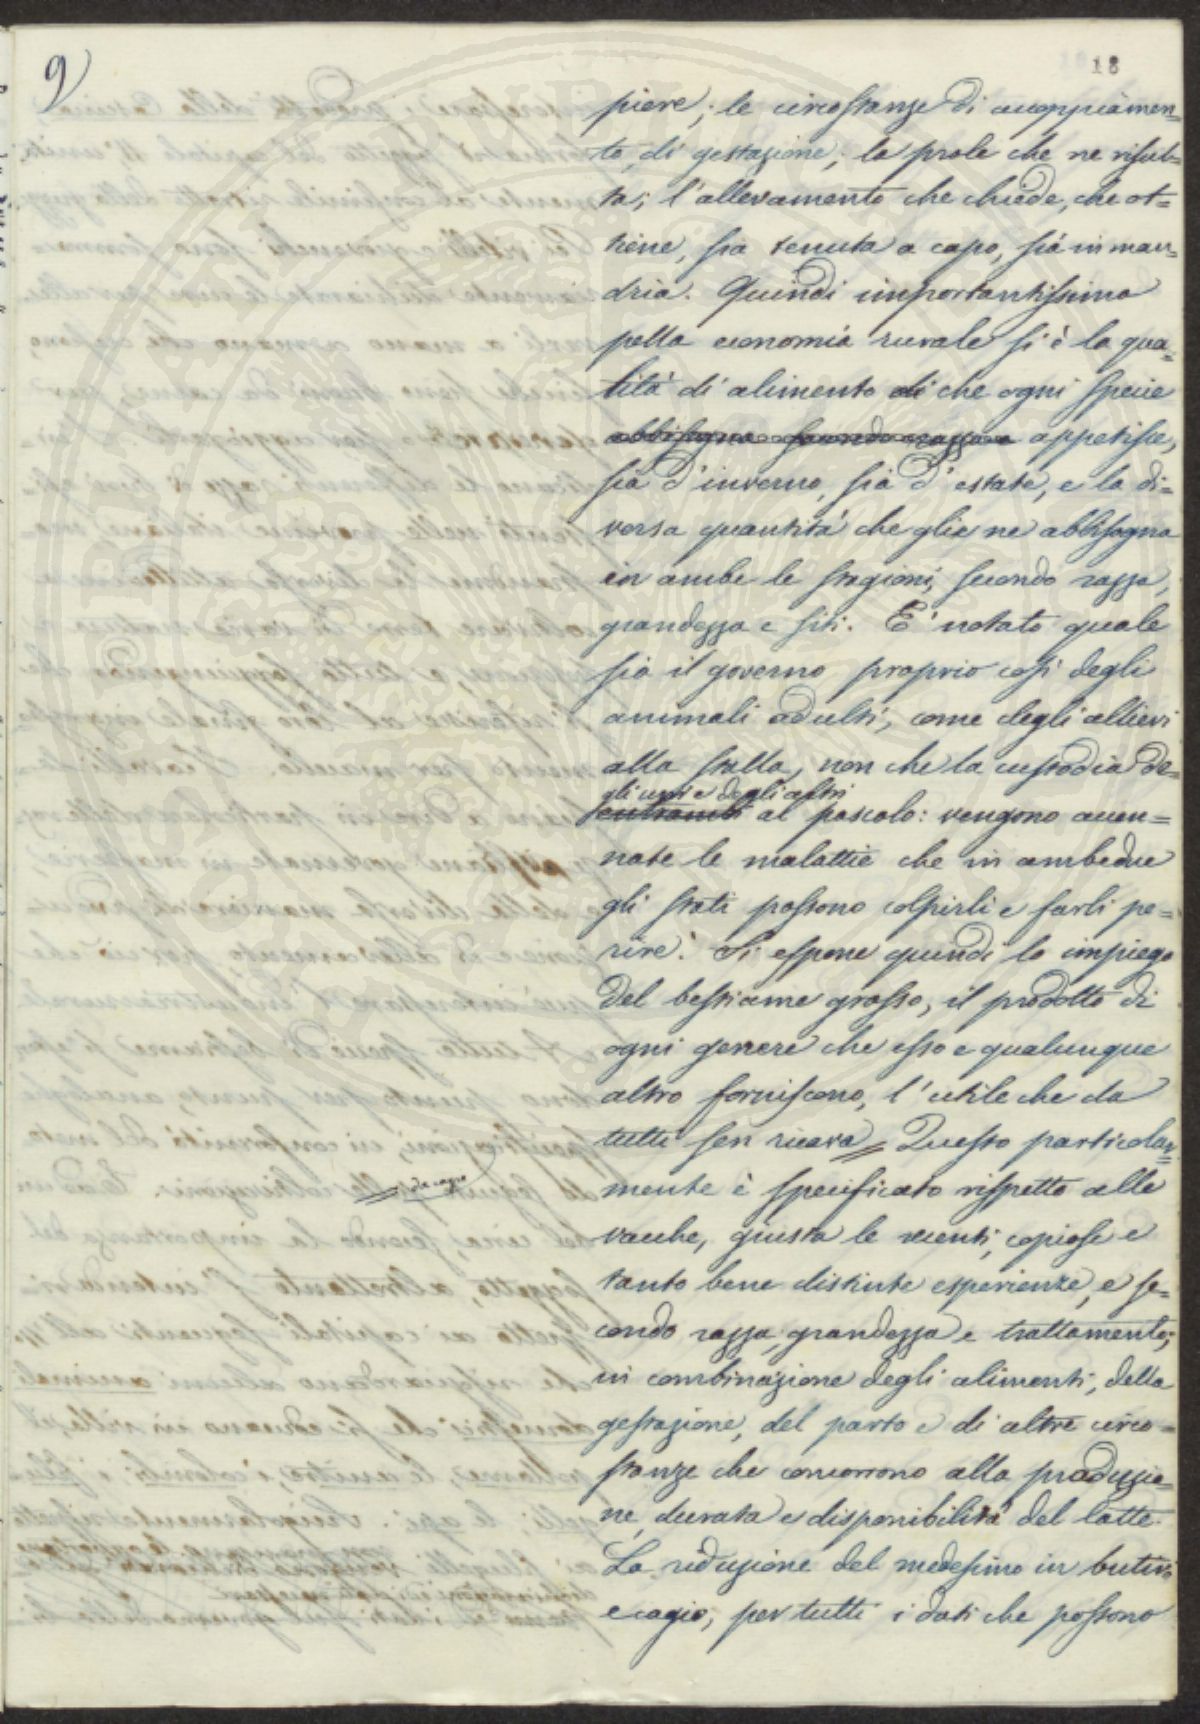 9)
18
piere; le circostanze di accoppiamen=
to, di gestazione; la prole che ne risul=
ta; l'allevamento che chiede, che ot=
tiene, sia tenuta a capo, sia in man=
dria. Quindi importantissimo
pella economia rurale si è la qua=
lità di alimento di che ogni specie
abbisogna secondo razza appetisce,
sia d'inverno, sia d'estate, e la di=
versa quantità che glie ne abbisogna
in ambe le stagioni, secondo razza,
grandezza e siti. E' notato quale
sia il governo proprio così degli
animali adulti, come degli allievi
alla stalla, non che la custodia de=
gli uni e degli altri
entrambi al pascolo: vengono accen=
nate le malattie che in ambedue
gli stati possono colpirli e farli pe=
rire. Si espone quindi lo impiego
del bestiame grosso, il prodotto di
ogni genere che esso e qualunque
altro forniscono, l'utile che da
tutti sen ricava = Questo particolar=
= da capo
mente è specificato rispetto alle
vacche, giusta le recenti, copiose e
tanto bene distinte esperienze, e se=
condo razza, grandezza e trattamento;
in combinazione degli alimenti, della
gestazione, del parto e di altre circo=
stanze che concorrono alla produzio=
ne, durata e disponibilità del latte.
La riduzione del medesimo in butirro
e cagio, per tutti i dati che possono